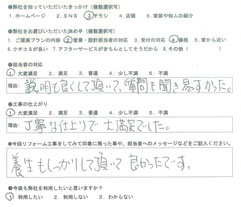 ●弊社を知っていただいたきっかけ（複数選択可）
1.ホームページ 2.SNS 3.チラシ 4.店頭 5.家族や知人の紹介
●弊社をお選びいただいた決め手（複数選択可）
1.ご提案プランの内容 2.営業・設計担当者の対応 3.受付の対応 4.価格 5.家から近い
6.クチコミが良い 7.アフターサービスがきちんとしてそうだから 8.その他（ ）
●担当者の対応
1.大変満足 2.満足 3.普通 4.少し不満 5.不満
理由 説明も良くして頂いて、質問も聞き易すかった。
●工事の仕上がり
1.大変満足 2.満足 3.普通 4.少し不満 5.不満
理由 丁寧な仕上りで大満足でした。
●今回リフォーム工事をしてみての印象に残った事や、担当者へのメッセージなどをご記入ください。
養生もしっかりして頂いて良かったです。
●今後も弊社を利用したいと思いますか？
1.利用したい 2.利用しない 3.わからない